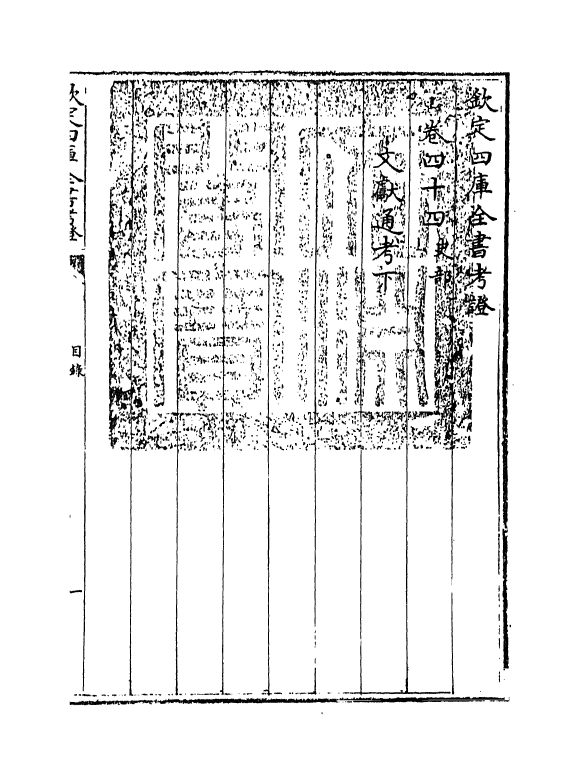 欽定四庫全書考證
卷四十四 史部
文獻通考下
欽定四庫全書考證
目錄
一